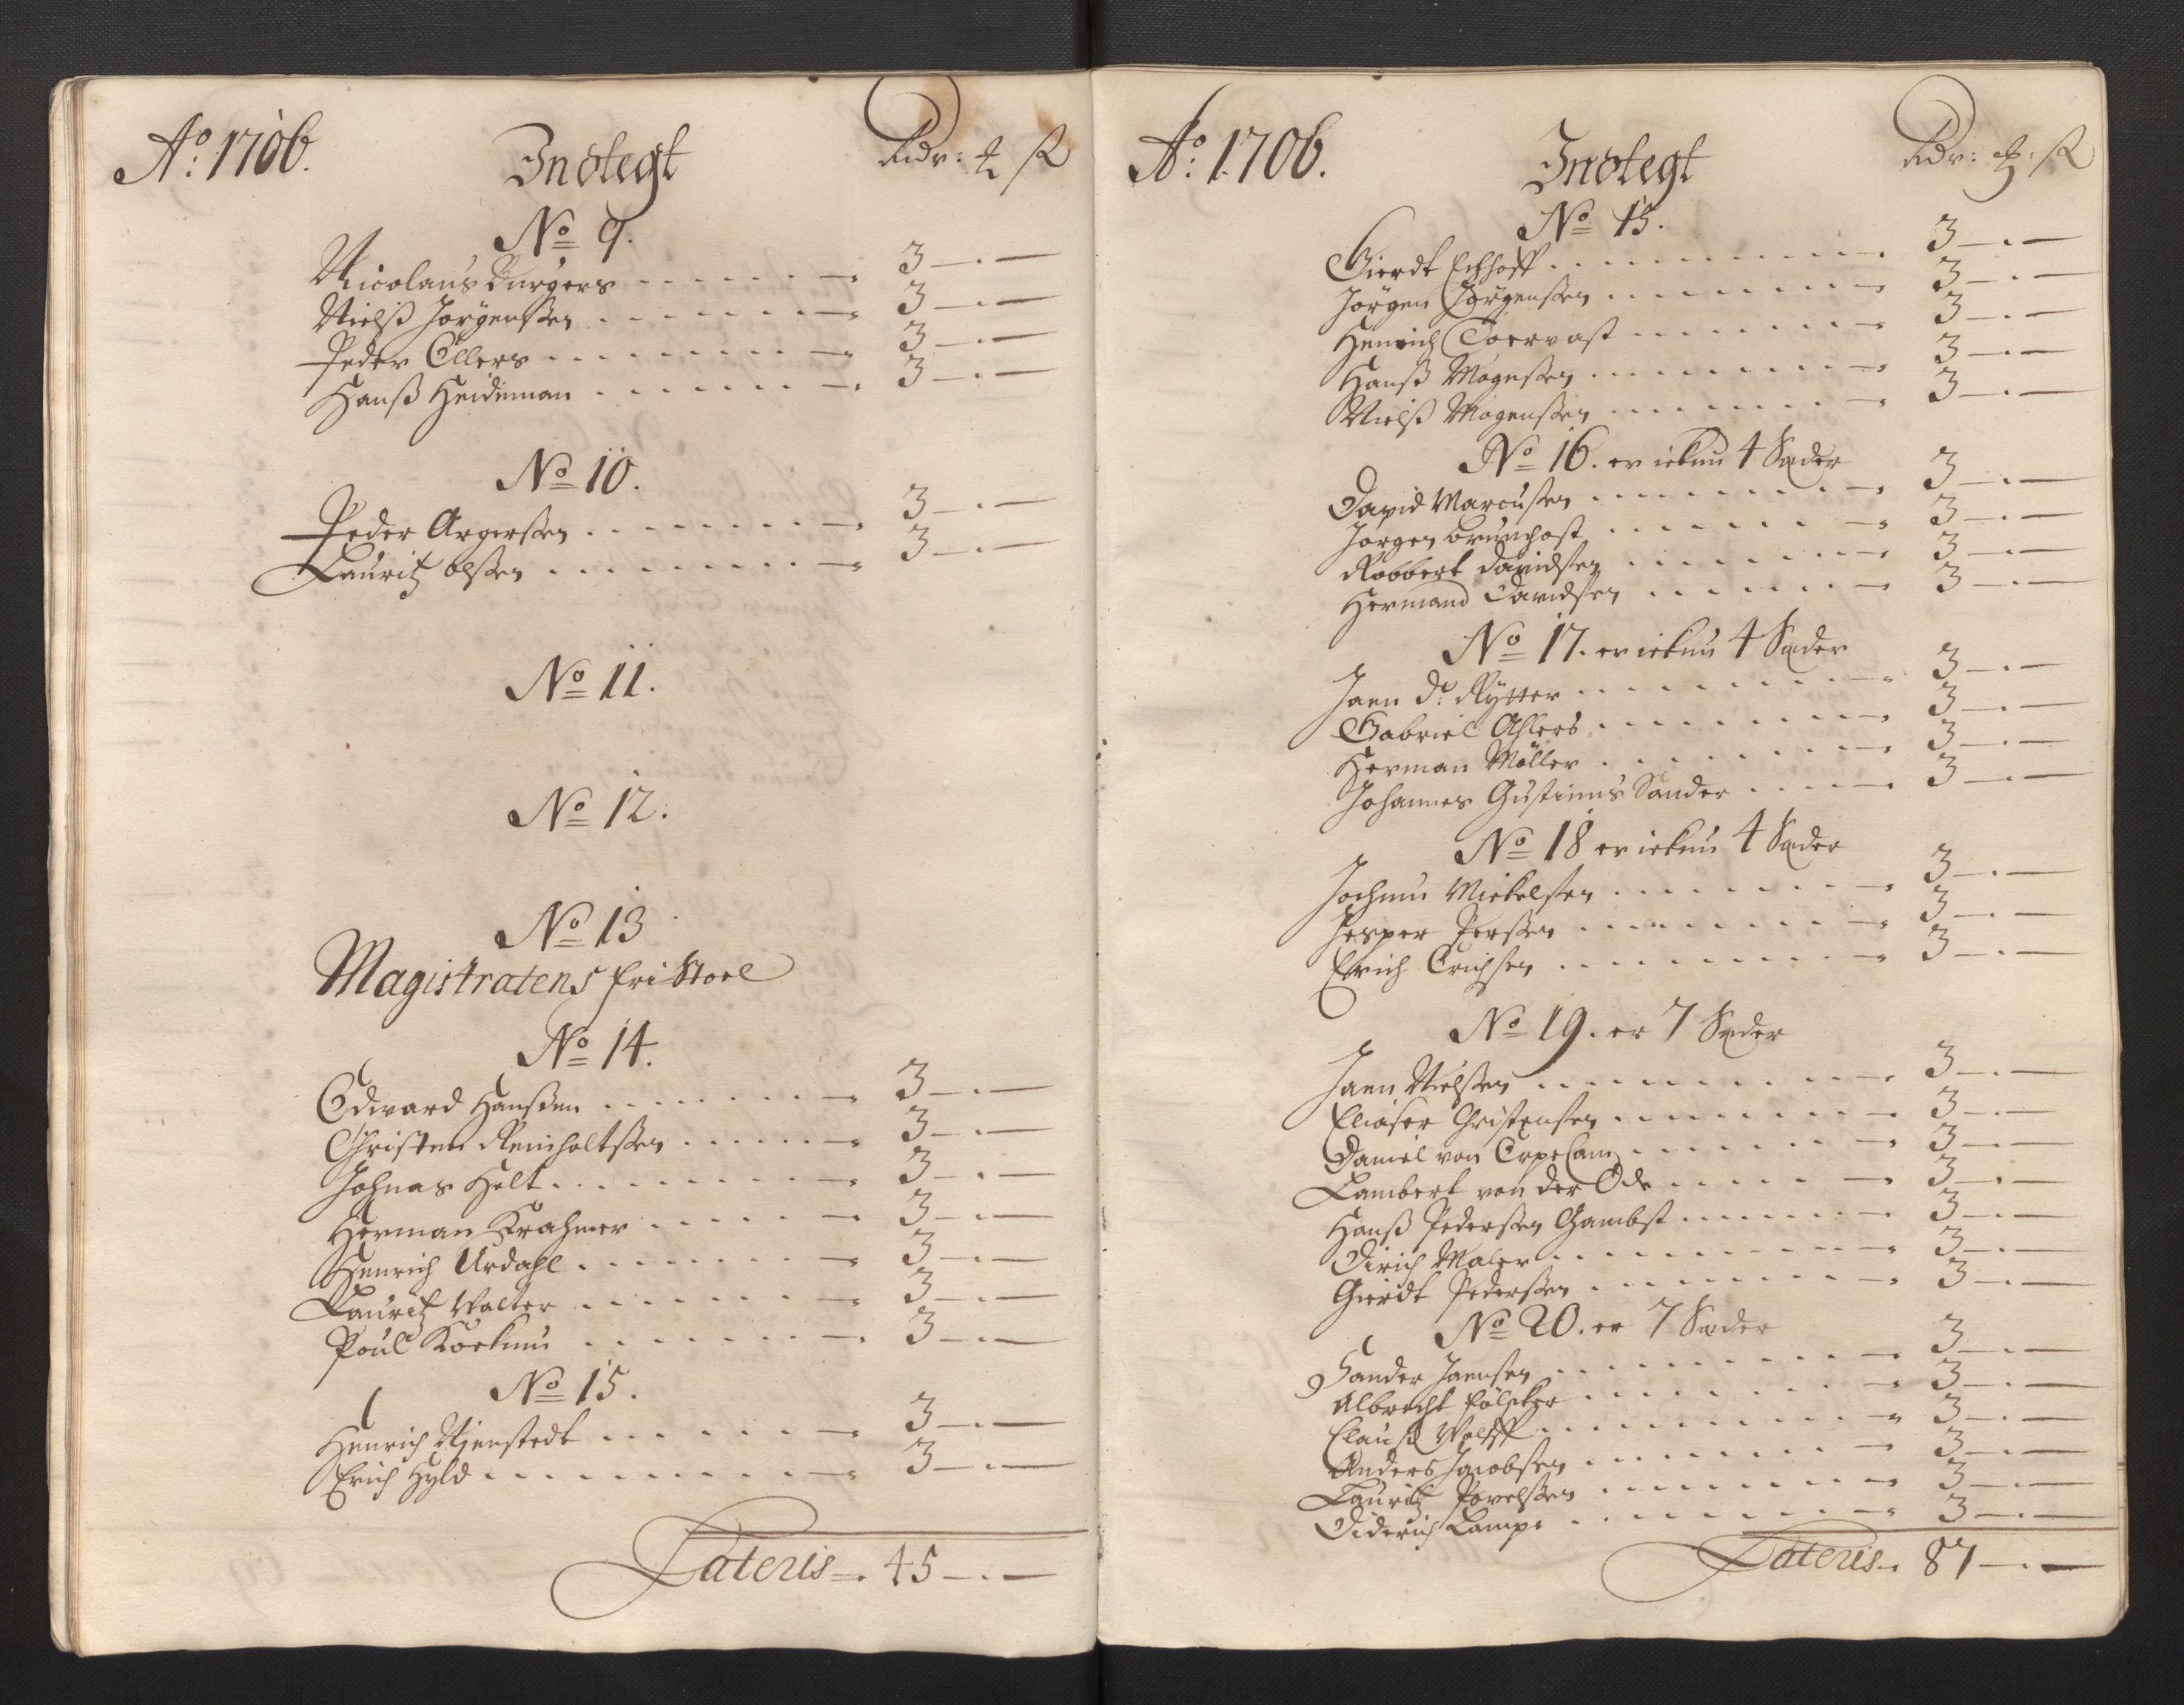 Ao: 1706. Indtegt Rdr: ₰ ß
No 9.
Nicolaus Burgers - - - - - - - 3 – . –
Nielß Jörgenßen - - - - - - - 3 – . –
Peder Ellers - - - - - - - - - 3 – . –
Hanß Heideman - - - - - - - 3 – . –
No 10.
Peder Argerßen - - - - - - - - 3 – . –
Lauritz Olßen - - - - - - - - - 3 – . –
No 11.
No 12.
No 13
Magistratens fri Stoel
No 14.
Edward Hanßen - - - - - - - 3 – . –
Christen Reinholtßen - - - - - - 3 – . –
Johnas Holt - - - - - - - - - 3 – . –
Herman Krahmer - - - - - - 3 – . –
Henrich Urdahl - - - - - - - 3 – . –
Lauritz Walter - - - - - - - - 3 – . –
Poul Koekuu - - - - - - - - 3 – . –
No 15.
Henrich Nienstedt - - - - - - 3 – . –
Erich Hyld - - - - - - - - - - 3 – . –
Lateris – . 45 – . –
Ao: 1706. Indtegt Rdr: ₰: ß
No 15.
Gierdt Echhoff - - - - - - - - - - 3 – . –
Jörgen Jörgenßen - - - - - - - - 3 – . –
Henrich Toervast - - - - - - - 3 – . –
Hanß Mogenßen - - - - - - - - 3 – . –
Nielß Mogenßen - - - - - - - - 3 – . –
No 16. er ickun 4 Sæder
David Marcusen - - - - - - - - 3 – . –
Jörgen Brunchost - - - - - - - 3 – . –
Robbert Davidsen - - - - - - - 3 – . –
Hermand Davidsen - - - - - - - 3 – . –
No 17. er ickun 4 Sæder
Jaen de Rytter - - - - - - - - - 3 – . –
Gabriel Ahlers - - - - - - - - - 3 – . –
Herman Möller - - - - - - - - 3 – . –
Johannes Gustinus Sander - - - - - 3 – . –
No 18 er ickun 4 Sæder
Jochum Mickelsen - - - - - - - - 3 – . –
Jesper Perßen - - - - - - - - - 3 – . –
Erich Erichsen - - - - - - - - - - 3 – . –
No 19. er 7 Sæder
Jaen Nielßen - - - - - - - - - - 3 – . –
Eliaser Christensen - - - - - - - - 3 – . –
Daniel von Erpecam - - - - - - - 3 – . –
Lambert von der Ode - - - - - - 3 – . –
Hanß Pederßen Gambst - - - - - - - 3 – . –
Dirich Maler - - - - - - - - - - 3 – . –
Gierdt Pederßen - - - - - - - - - 3 – . –
No 20. er 7 Sæder
Sander Jaensen - - - - - - - - - 3 – . –
Albrecht Fölscher - - - - - - - - 3 – . –
Clauß Wolff - - - - - - - - - - 3 – . –
Anders Jacobsen - - - - - - - - 3 – . –
Lauritz Povelßen - - - - - - - - 3 – . –
Diderich Lampe - - - - - - - - 3 – . –
Lateris . 87 – . –